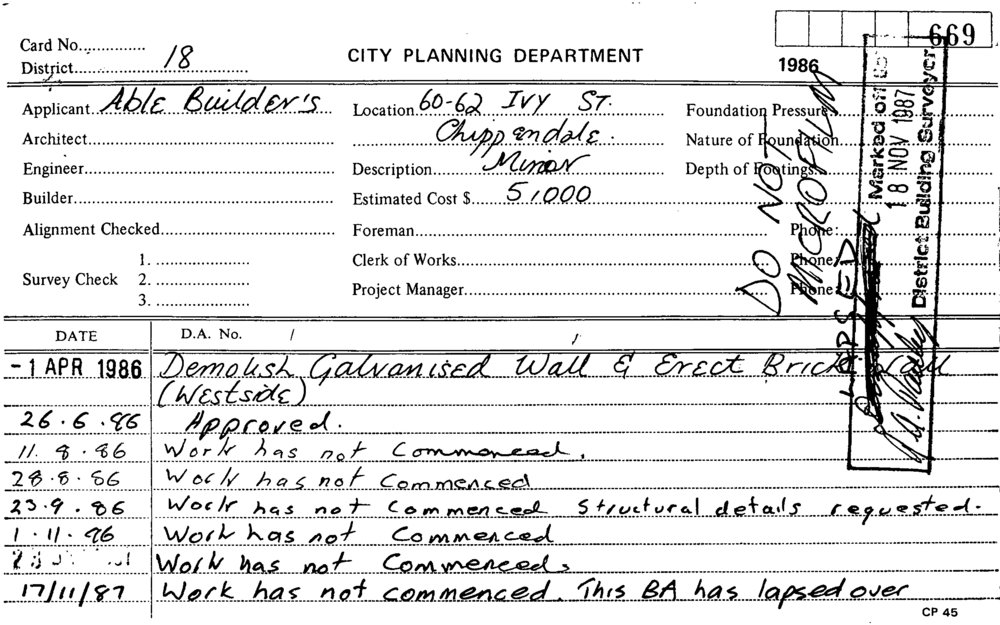 669
Card No.
District 18
CITY PLANNING DEPARTMENT
1986
Applicant Able Builder's
Location 60-62 Ivy St.
Foundation Pressure
Architect
Chippendale.
Nature of Foundation
Engineer
Description Minor
Depth of Footings
Builder
Estimated Cost $ 5,000
Alignment Checked
Foreman
Phone:
Survey Check
1.
2.
3.
Clerk of Works
Phone:
Project Manager
Phone:
DO NOT
MICROFILM
LAPSED
Marked off
18 NOV 1987
District Building Surveyor
DATE
D.A. No. / /
-1 APR 1986 Demolish Galvanised Wall & Erect Brick Wall
(Westside)
26.6.86 Approved.
11.8.86 Work has not Commenced.
28.8.86 Work has not Commenced
23.9.86 Work has not Commenced Structural details requested.
1.11.86 Work has not Commenced
Work has not Commenced.
17/11/87 Work has not commenced. This BA has lapsed over
CP 45